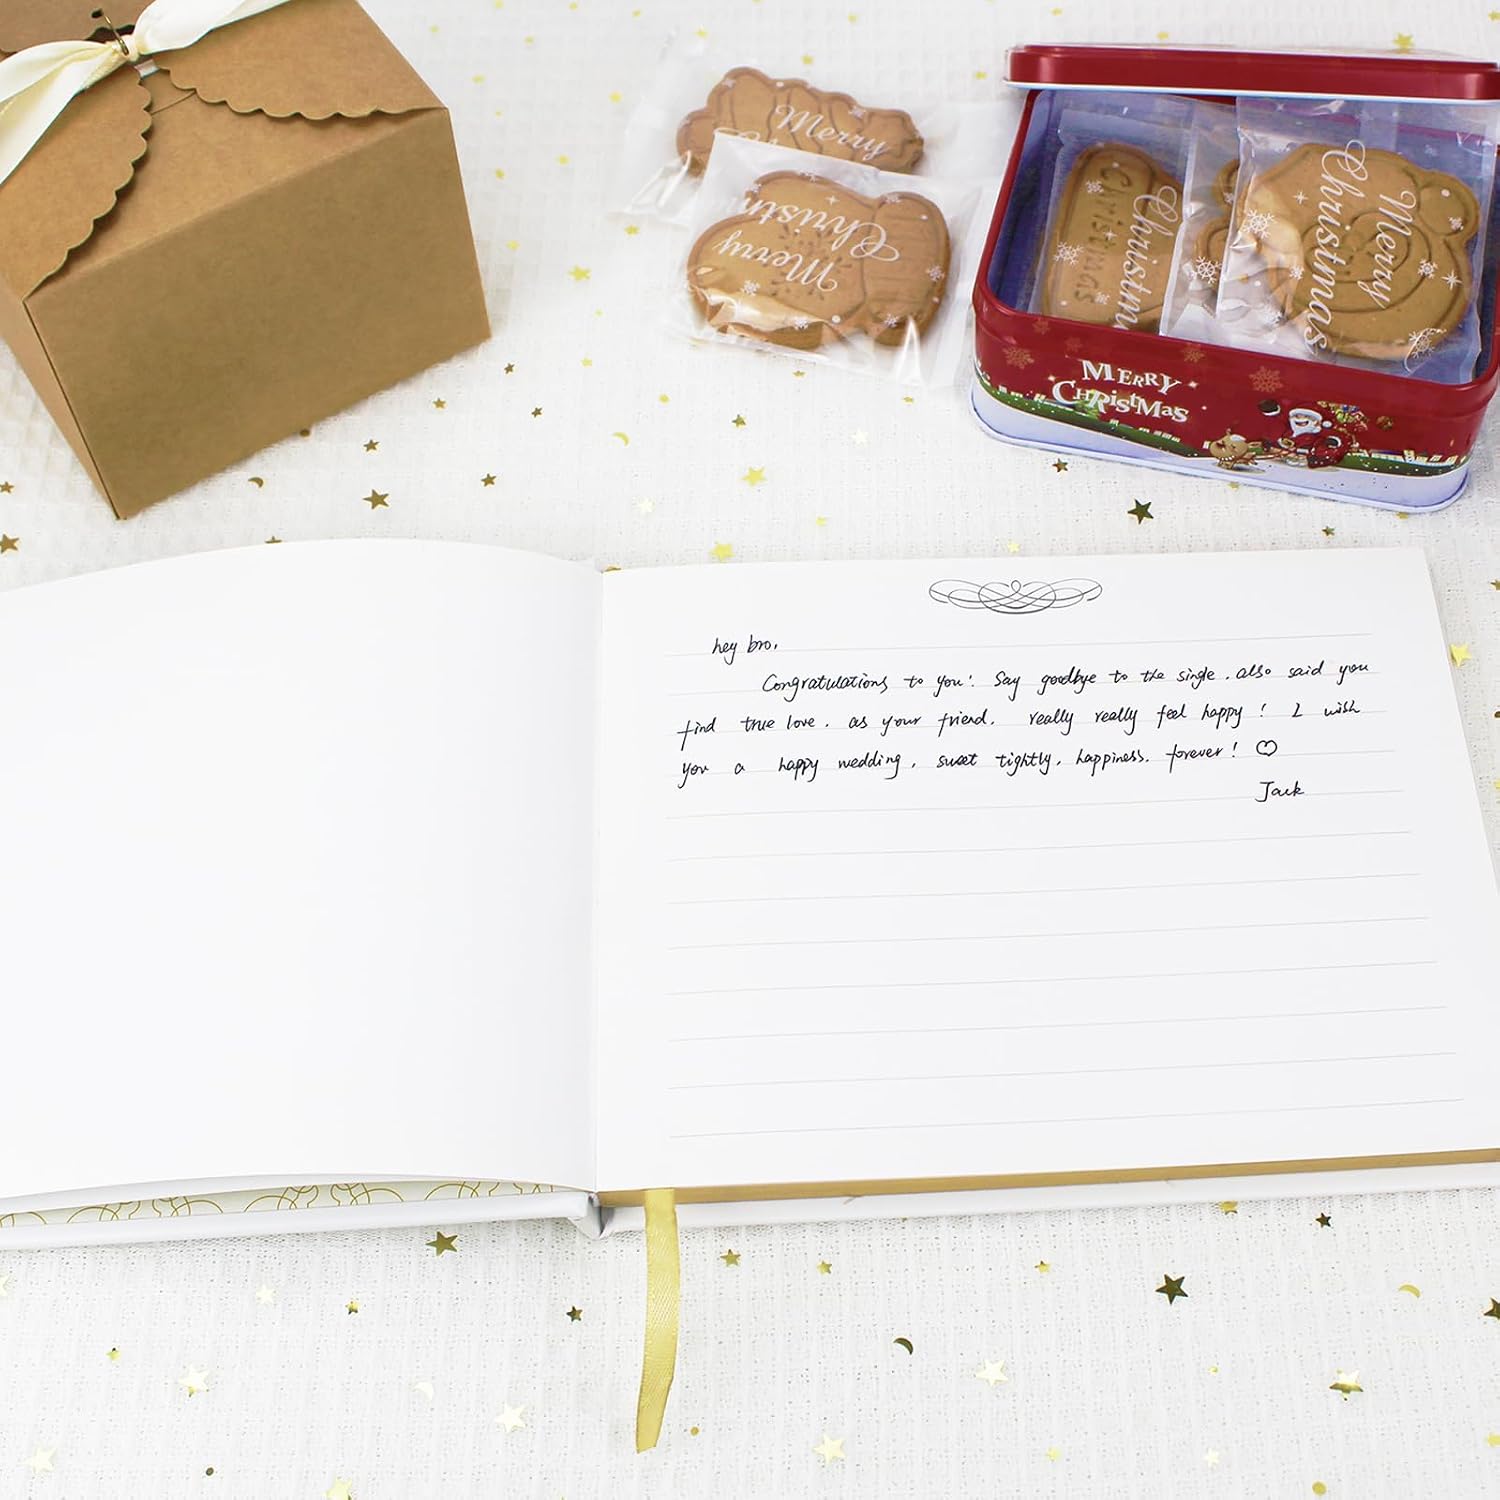 Merry
Merry
Christmas
Christmas
Christmas
Merry
Christmas
MERRY
CHRISTMAS
hey bro,
Congratulations to you! Say goodbye to the single. also said you
find true love. as your friend. really really feel happy! I wish
you a happy wedding, sweet tightly, happiness. forever! ♡
Jack